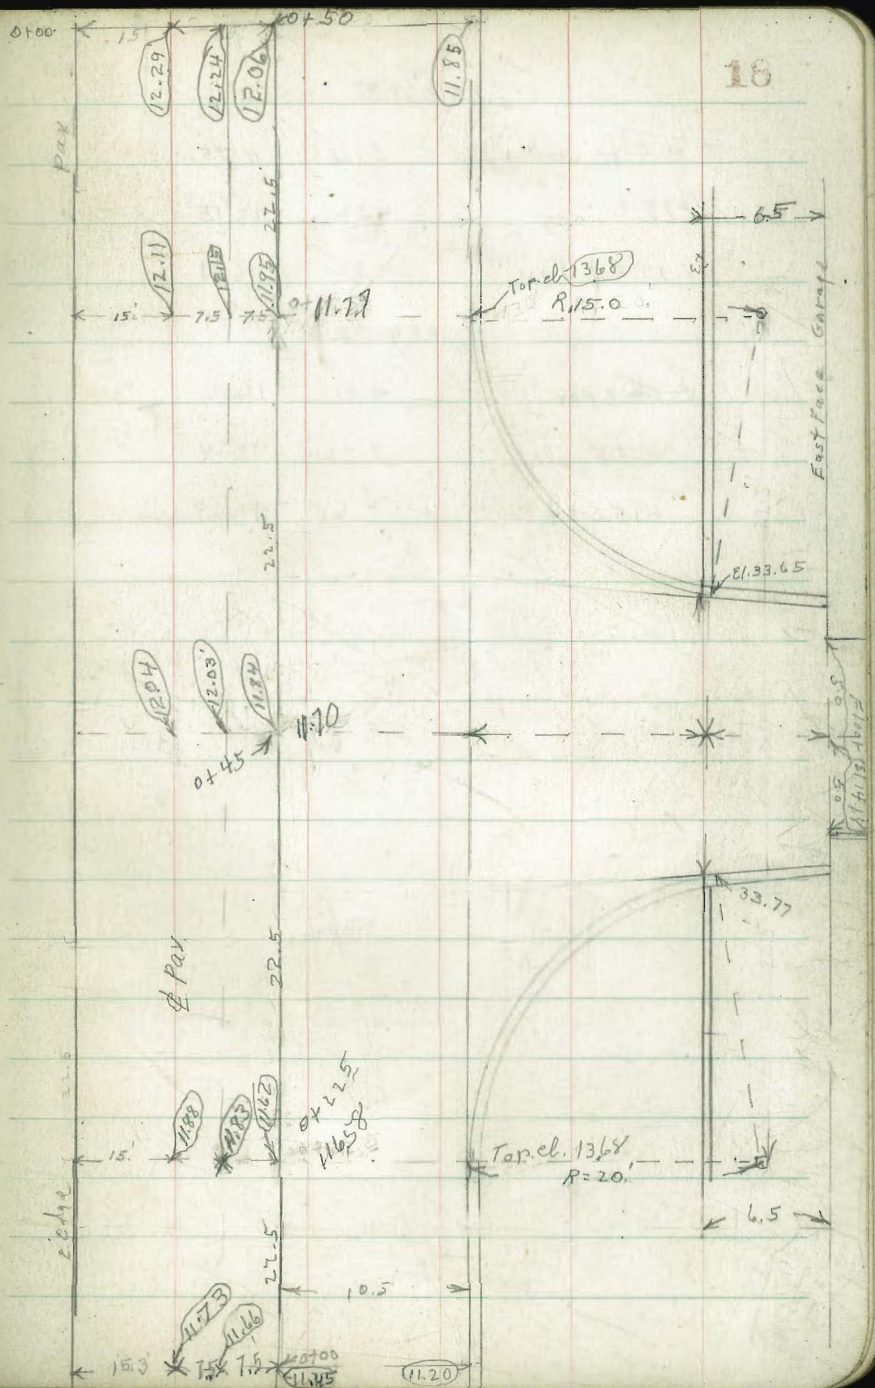 0+00
15
12.29
12.24
12.06
0+50
11.85
18
Pav
22.5
6.5
12.11
12.15
11.95
Top.el. 1368
R.15.0
15'
7.5
7.5
0+
11.77
East Face Garage
22.5
El.33.65
12.04
12.03'
11.84
11.70
0+45
33.77
℄ Pav.
22.5
11.88
11.83
11.62
0+225
11658
15.
Top.el. 1368
R=20.
6.5
Edge
22.5
10.5
11.73
11.66
15.3'
7.5
7.5'
0+00
11.45
11.20